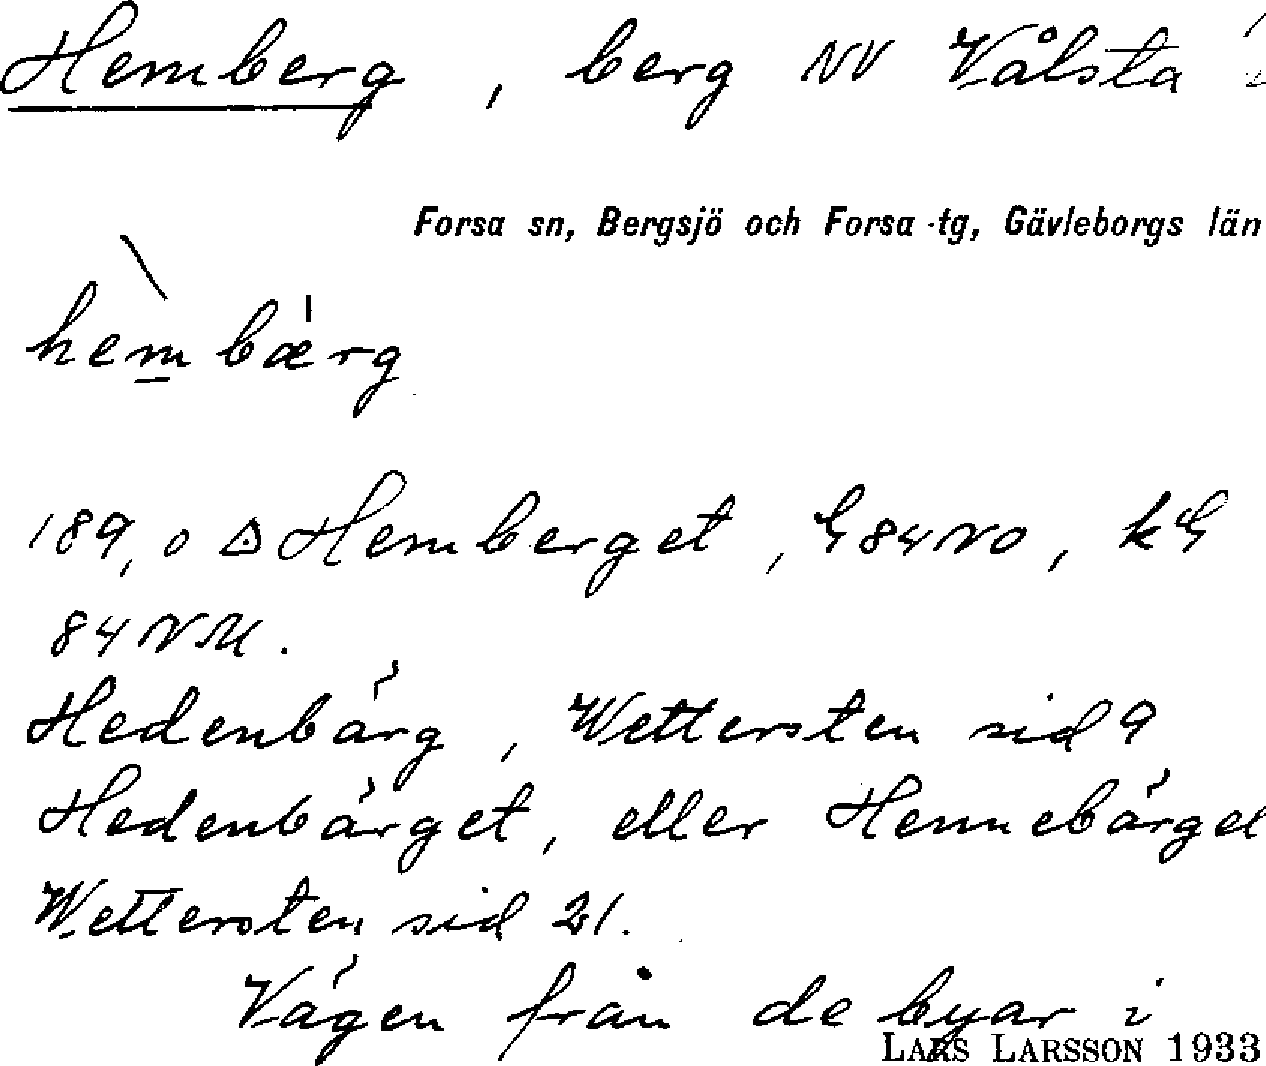 Hemberg, berg NV Vålsta i
Forsa sn, Bergsjö och Forsa tg, Gävleborgs län
hèmbærg
189,0 △ Hemberget, G84NO, kG
84NM.
Hedenbärg, Wettersten sid 9
Hedenbärget, eller Hennebärget
Wettersten sid 21.
Vägen från de byar i
LARS LARSSON 1933